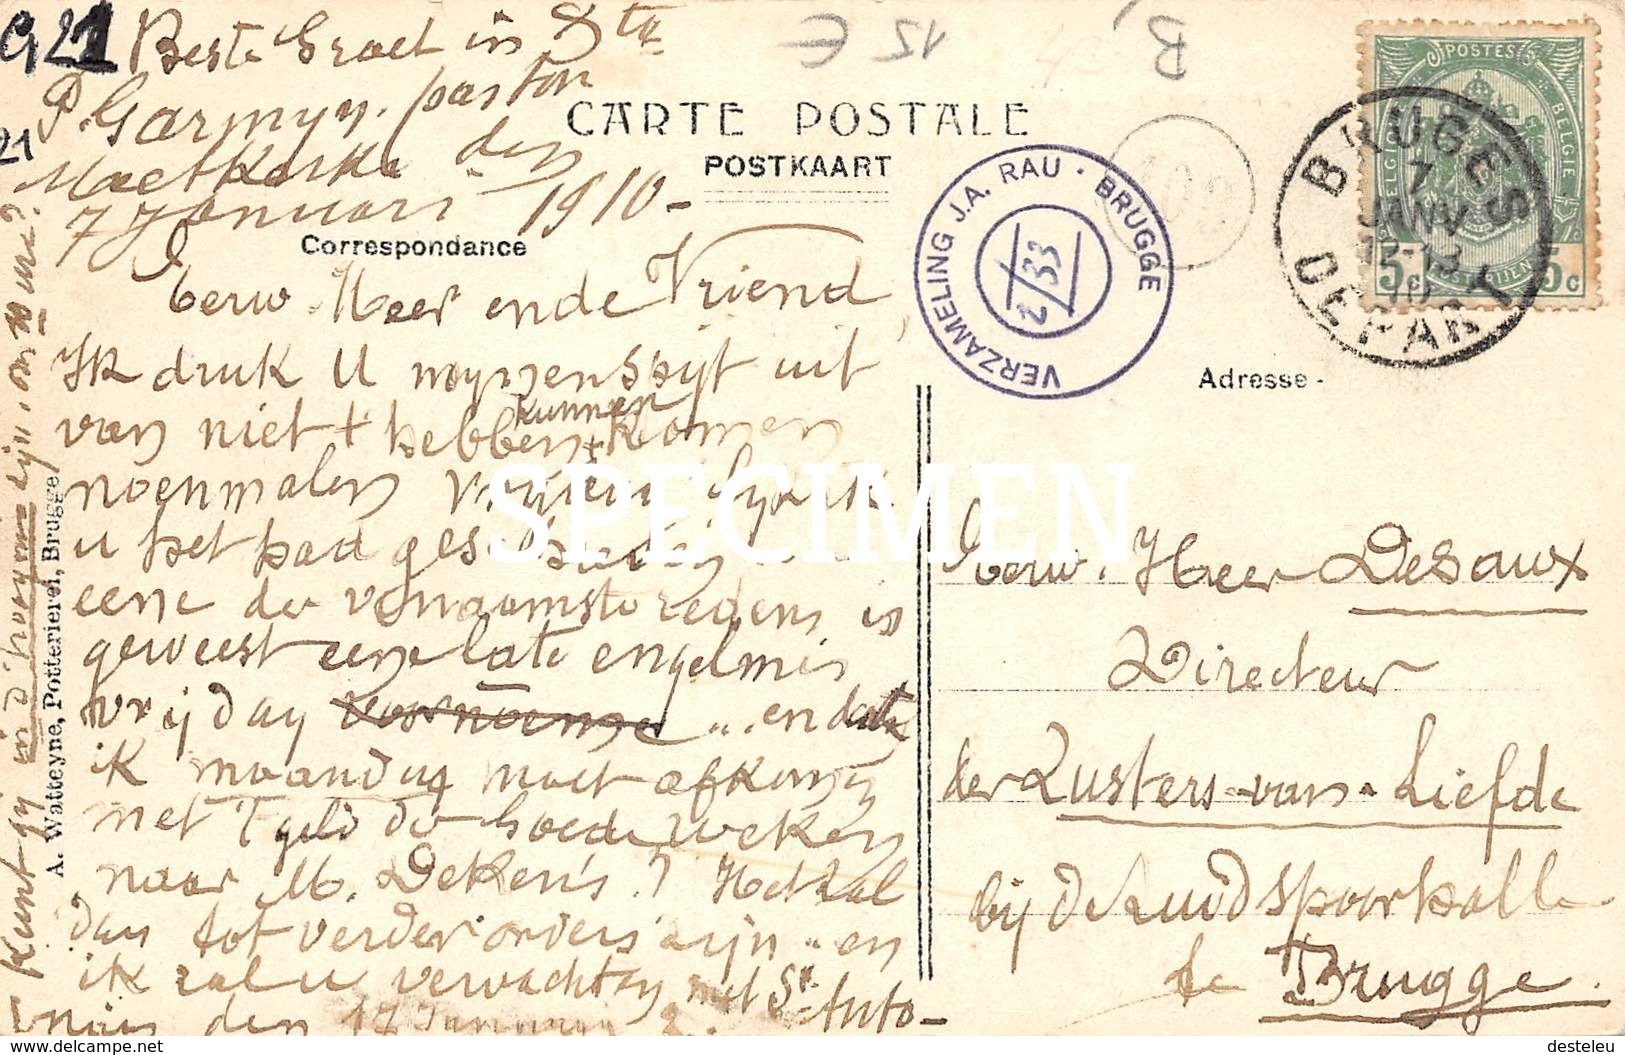 921
21
Beste Groet in Xto
P. Garmyn. pastor
Moerkerke den
7 Januari 1910-
B,
15 €
CARTE POSTALE
POSTKAART
Correspondance
Adresse-
VERZAMELING J.A. RAU · BRUGGE
2/33
109
POSTES
BELGIQUE
BELGIË
5c 5c
BRUGES
7
JANV
12-13
10
DEPART
Eerw. Heer ende Vriend
Ik druk U myn spyt uit
van niet + hebben kunnen komen
noenmalen vrijdag lyk ik
u het had geschreven
eene der vernaamste redens is
geweest eene late engelmis
vrijdag voornoene „. en dat
ik maandag moet afkomen
met 't geld der goede weken
naar M. Deken's.! Het zal
dan tot verder orders zijn „ en
ik zal u verwachten met St Anto-
nius den 17 January
Kunt gy in d'hoogmis zijn, om 10 ure?
A. Watteyne, Potterierei, Brugge
Eerw. Heer Desaux
Directeur
der Zusters-van-Liefde
bij de Zuidspoorhalle
te Brugge.
SPECIMEN
www.delcampe.net
desteleu